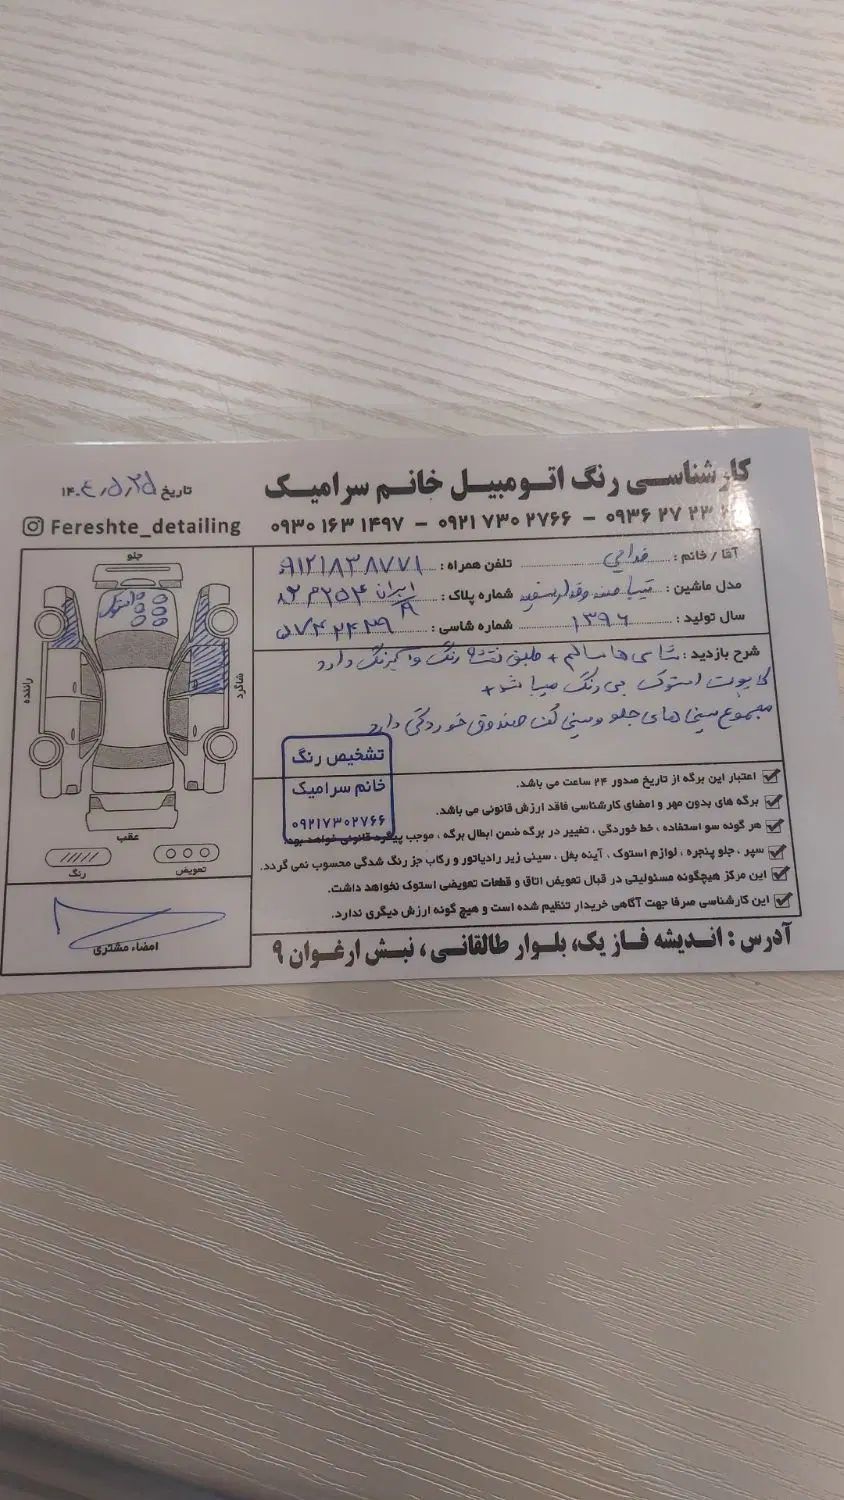 کارشناسی رنگ اتومبیل خانم سرامیک
تاریخ ۱۴۰۴/۵/۲۵
۰۹۳۶ ۲۷ ۲۳ – ۰۹۲۱ ۷۳۰ ۲۷۶۶ – ۰۹۳۰ ۱۶۳ ۱۴۹۷
Fereshte_detailing
آقا / خانم : خدامی تلفن همراه : ۰۹۱۲۱۸۳۸۷۷۱
مدل ماشین : تیبا صندوقدار سفید شماره پلاک : ایران
سال تولید : ۱۳۹۶ شماره شاسی : ۵۷۴۲۴۳۹
شرح بازدید : شاسی ها سالم + طبق نقشه رنگ و آبرنگ دارد
کاپوت استوک بی رنگ میباشد +
مجموع سینی های جلو و سینی کف صندوق خوردگی دارد
تشخیص رنگ
خانم سرامیک
۰۹۲۱۷۳۰۲۷۶۶
اعتبار این برگه از تاریخ صدور ۲۴ ساعت می باشد.
برگه های بدون مهر و امضای کارشناسی فاقد ارزش قانونی می باشد.
هر گونه سو استفاده ، خط خوردگی ، تغییر در برگه ضمن ابطال برگه ، موجب پیگرد قانونی خواهد بود.
سپر ، جلو پنجره ، لوازم استوک ، آینه بغل ، سینی زیر رادیاتور و رکاب جز رنگ شدگی محسوب نمی گردد.
این مرکز هیچگونه مسئولیتی در قبال تعویض اتاق و قطعات تعویضی استوک نخواهد داشت.
این کارشناسی صرفا جهت آگاهی خریدار تنظیم شده است و هیچ گونه ارزش دیگری ندارد.
جلو
استوک
راننده
شاگرد
عقب
تعویض
رنگ
امضاء مشتری
آدرس : اندیشه فاز یک، بلوار طالقانی ، نبش ارغوان ۹